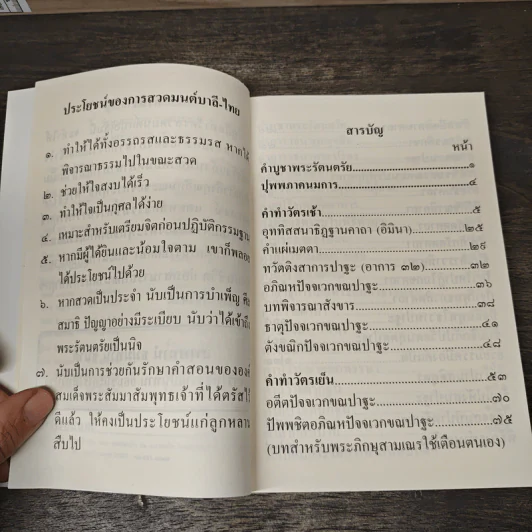 ประโยชน์ของการสวดมนต์บาลี-ไทย
๑. ทำให้ได้ทั้งอรรถรสและธรรมรส หากได้
พิจารณาธรรมไปในขณะสวด
๒. ช่วยให้ใจสงบได้เร็ว
๓. ทำให้ใจเป็นกุศลได้ง่าย
๔. เหมาะสำหรับเตรียมจิตก่อนปฏิบัติกรรมฐาน
๕. หากมีผู้ได้ยินและน้อมใจตาม เขาก็พลอย
ได้ประโยชน์ไปด้วย
๖. หากสวดเป็นประจำ นับเป็นการบำเพ็ญ ศีล
สมาธิ ปัญญาอย่างมีระเบียบ นับว่าได้เข้าถึง
พระรัตนตรัยเป็นนิจ
๗. นับเป็นการช่วยกันรักษาคำสอนขององค์
สมเด็จพระสัมมาสัมพุทธเจ้าที่ได้ตรัสไว้
ดีแล้ว ให้คงเป็นประโยชน์แก่ลูกหลาน
สืบไป
สารบัญ
หน้า
คำบูชาพระรัตนตรัย..........................๑
ปุพพภาคนมการ..........................๔
คำทำวัตรเช้า..........................๕
อุททิสสนาธิฏฐานคาถา (อิมินา)..............๒๕
คำแผ่เมตตา..........................๒๙
ทวัตติงสาการปาฐะ (อาการ ๓๒)..............๓๒
อภิณหปัจจเวกขณปาฐะ....................๓๖
บทพิจารณาสังขาร........................๓๘
ธาตุปัจจเวกขณปาฐะ....................๔๑
ตังขณิกปัจจเวกขณปาฐะ..................๔๘
คำทำวัตรเย็น..........................๕๓
อตีตปัจจเวกขณปาฐะ....................๗๐
ปัพพชิตอภิณหปัจจเวกขณปาฐะ............๗๕
(บทสำหรับพระภิกษุสามเณรใช้เตือนตนเอง)